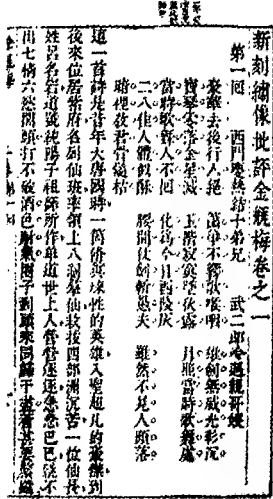 新刻繡像批評金瓶梅卷之一
第一回 西門慶熱結十弟兄 武二郎冷遇親哥嫂
豪華去後行人絕 簫箏不響歌喉咽 雄劍無威光彩沉
寶琴零落金星滅 玉階寂寞墜秋露 月照當時歌舞處
當時歌舞人不回 化為今日西陵灰
二八佳人體似酥 腰間仗劍斬愚夫 雖然不見人頭落
暗裡教君骨髓枯
這一首詩是昔年大唐國時一個修真煉性的英雄入聖超凡的豪傑到
後來位居紫府名列仙班率領上八洞羣仙救拔四部洲沉苦一位仙長
姓呂名岩道號純陽子祖師所作單道世上人營營逐逐急急巴巴跳不
出七情六慾關頭打不破酒色財氣圈子到頭來同歸于盡着甚要緊